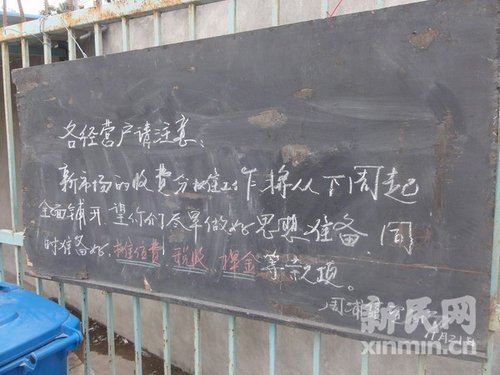 各经营户请注意:
新市场的收费分摊工作,将从下周起
全面铺开,望你们尽早做好思想准备,同
时准备好,摊位费、税收、押金等款项。
周浦
11月21日
新民网
xinmin.cn